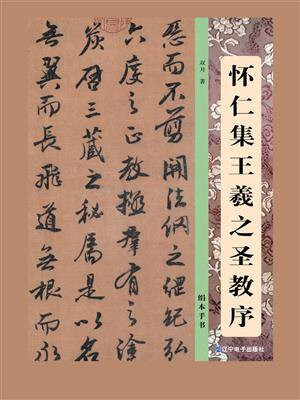 怀仁集王羲之圣教序
双月 著
绢本手书
辽宁电子出版社
愆而不剪開法網之綱紀弘
六度之正教拯群有之塗
炭啓三藏之秘扃是以名
無翼而長飛道無根而永